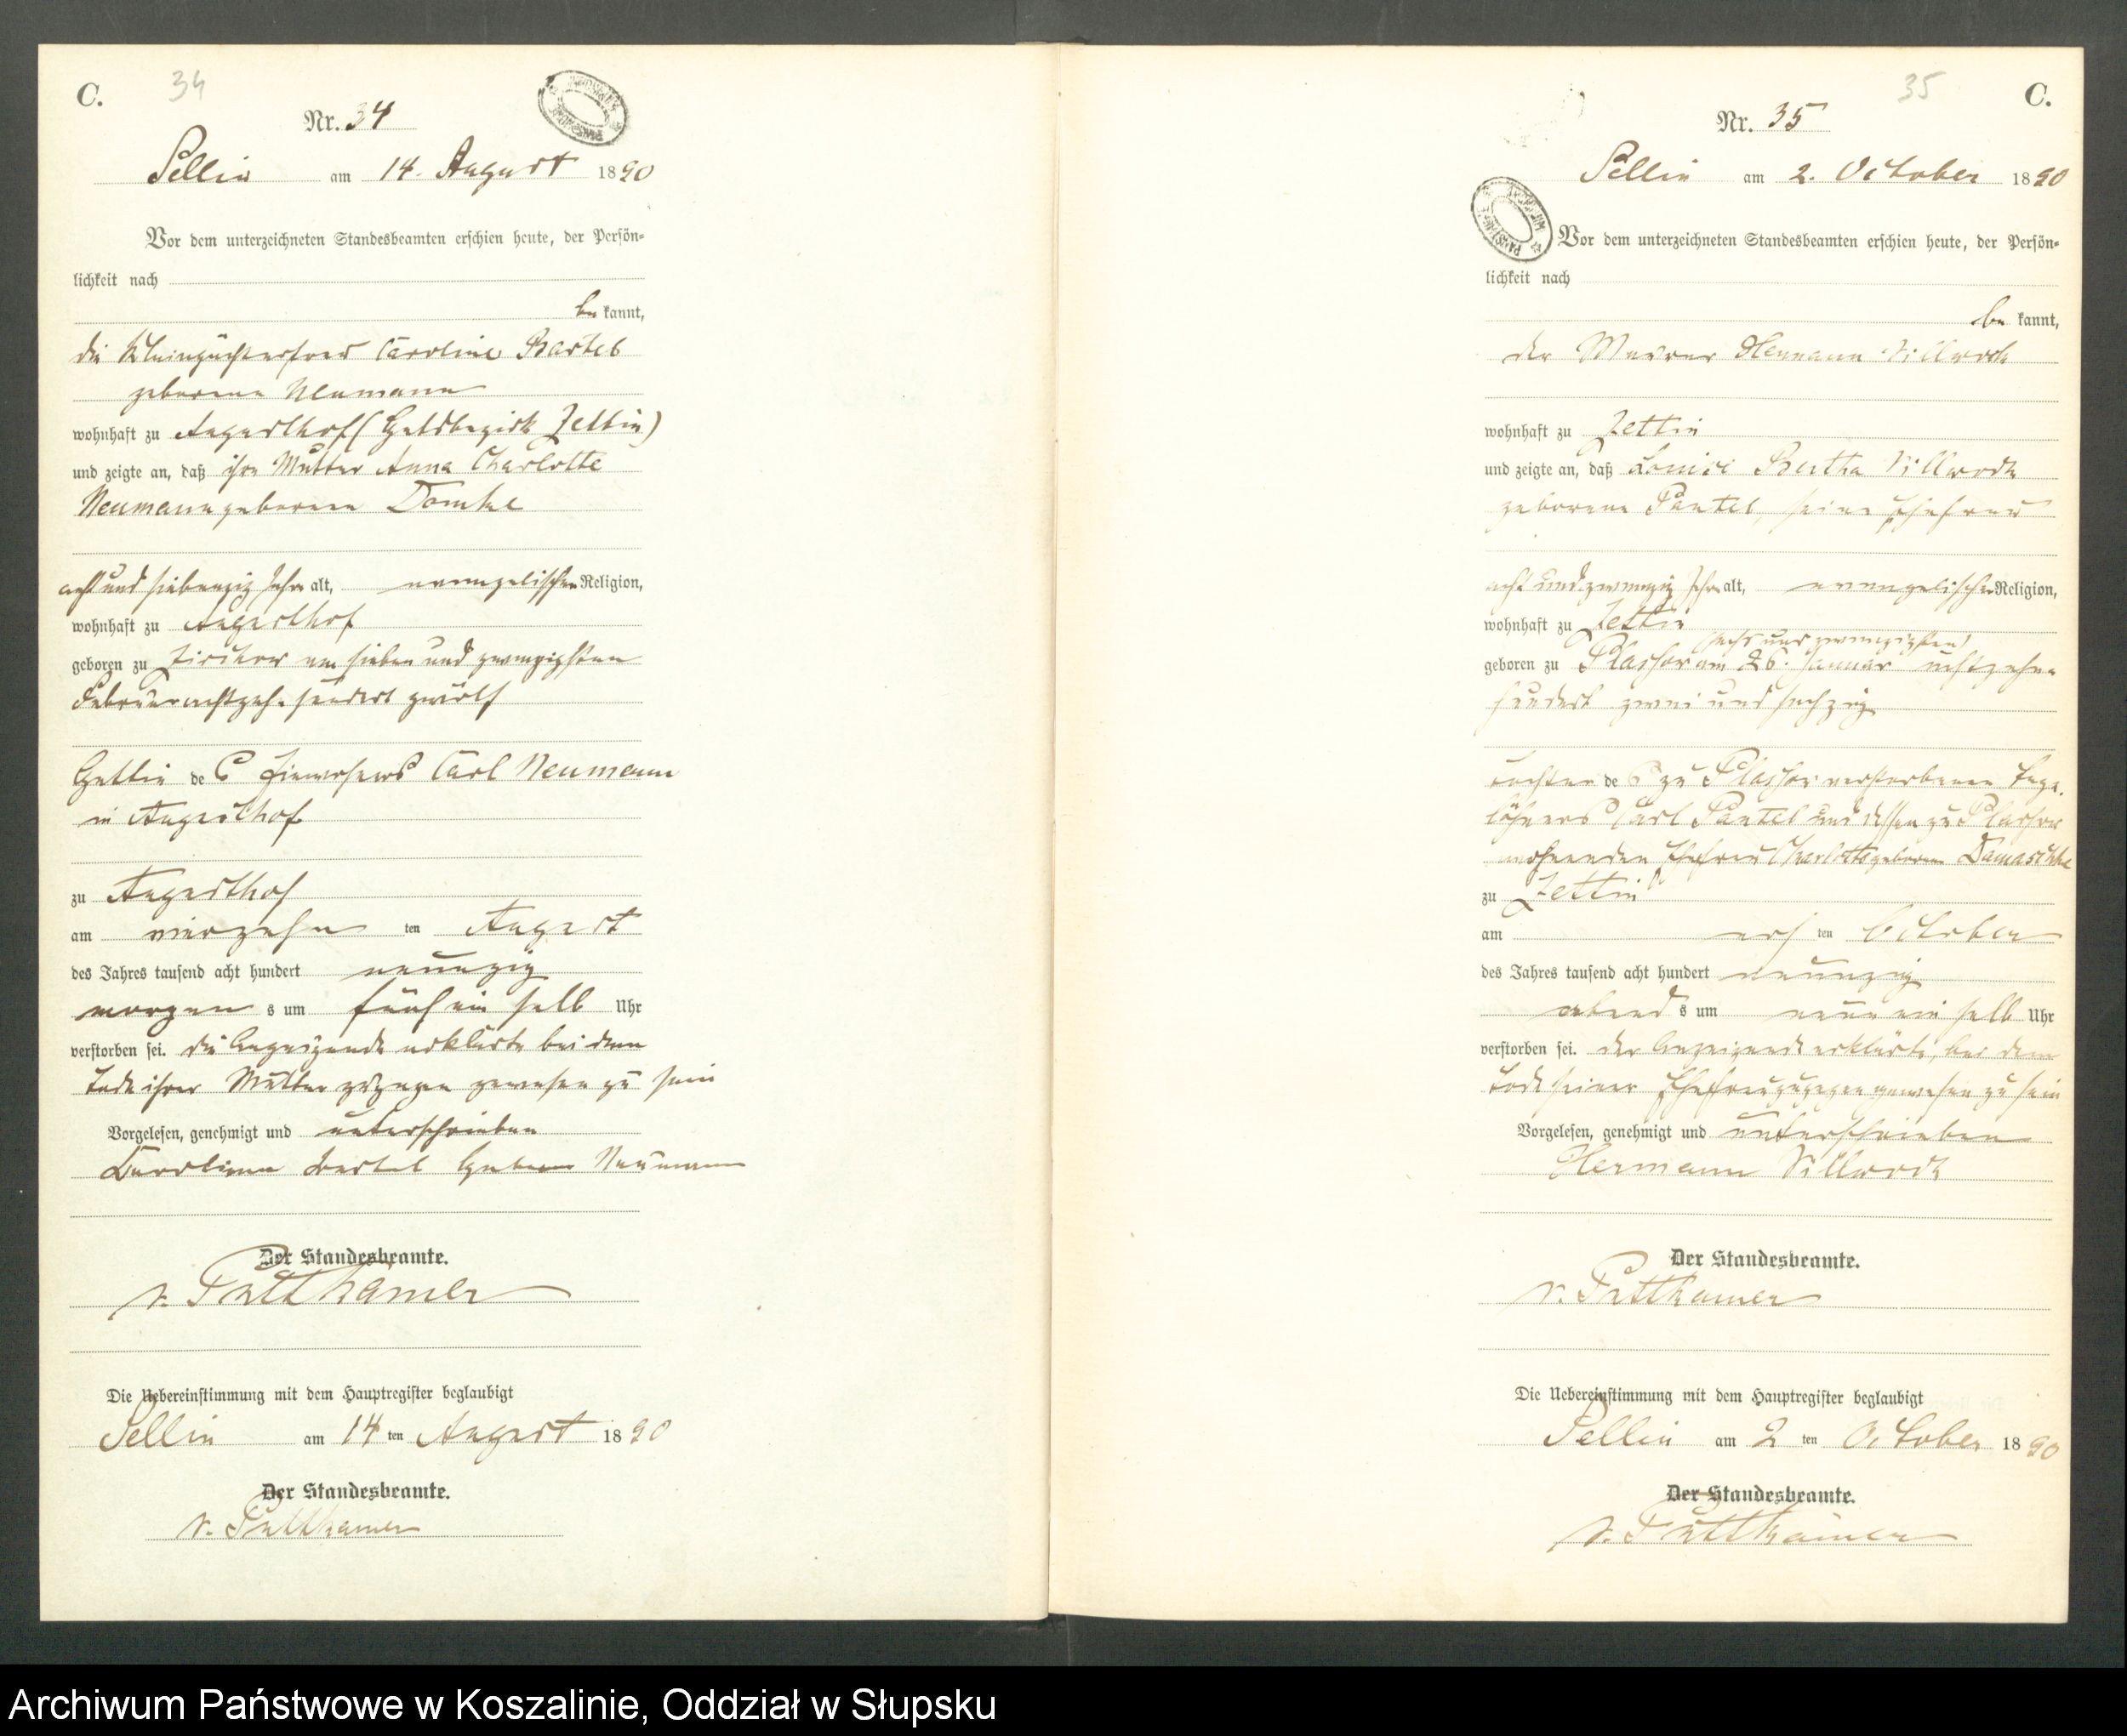 C.
34
Nr. 34
Sellin am 14. August 1890
Vor dem unterzeichneten Standesbeamten erschien heute, der Persön=
lichkeit nach
be kannt,
die Kleinpächterfrau Caroline Bartel
geborene Neumann
wohnhaft zu Augusthof (Gutsbezirk Zettin)
und zeigte an, daß ihre Mutter Anna Charlotte
Neumann geborene Domke
acht und siebenzig Jahre alt, evangelischer Religion,
wohnhaft zu Augusthof
geboren zu Zirchow am sieben und zwanzigsten
Februar achtzehnhundert zwölf
Gattin des Einwohners Carl Neumann
in Augusthof
zu Augusthof
am vierzehn ten August
des Jahres tausend acht hundert neunzig
morgen s um fünf ein halb Uhr
verstorben sei. die Anzeigende erklärte bei dem
Tode ihrer Mutter zugegen gewesen zu sein
Vorgelesen, genehmigt und unterschrieben
Karoline Bartel Neumann
Der Standesbeamte.
v. Puttkamer
Die Uebereinstimmung mit dem Hauptregister beglaubigt
Sellin am 14 ten August 1890
Der Standesbeamte.
v. Puttkamer
35
C.
Nr. 35
Sellin am 2. October 1890
Vor dem unterzeichneten Standesbeamten erschien heute, der Persön=
lichkeit nach
be kannt,
der Maurer Hermann Villwock
wohnhaft zu Zettin
und zeigte an, daß Bertha Villwock
geborene Pantel, seine Ehefrau
acht und zwanzig Jahre alt, evangelischer Religion,
wohnhaft zu Zettin
(sechs und zwanzigsten)
geboren zu am 26. Januar achtzehn=
hundert zwei und sechzig
Tochter des zu verstorbenen Tage=
löhners Carl Pantel und dessen zu
wohnenden Ehefrau Charlotte geborene Damaschke
zu Zettin
am ers ten October
des Jahres tausend acht hundert neunzig
abend s um neun ein halb Uhr
verstorben sei. der Anzeigende erklärte, bei dem
Tode seiner Ehefrau zugegen gewesen zu sein
Vorgelesen, genehmigt und unterschrieben
Hermann Villwock
Der Standesbeamte.
v. Puttkamer
Die Uebereinstimmung mit dem Hauptregister beglaubigt
Sellin am 2 ten October 1890
Der Standesbeamte.
v. Puttkamer
Archiwum Państwowe w Koszalinie, Oddział w Słupsku